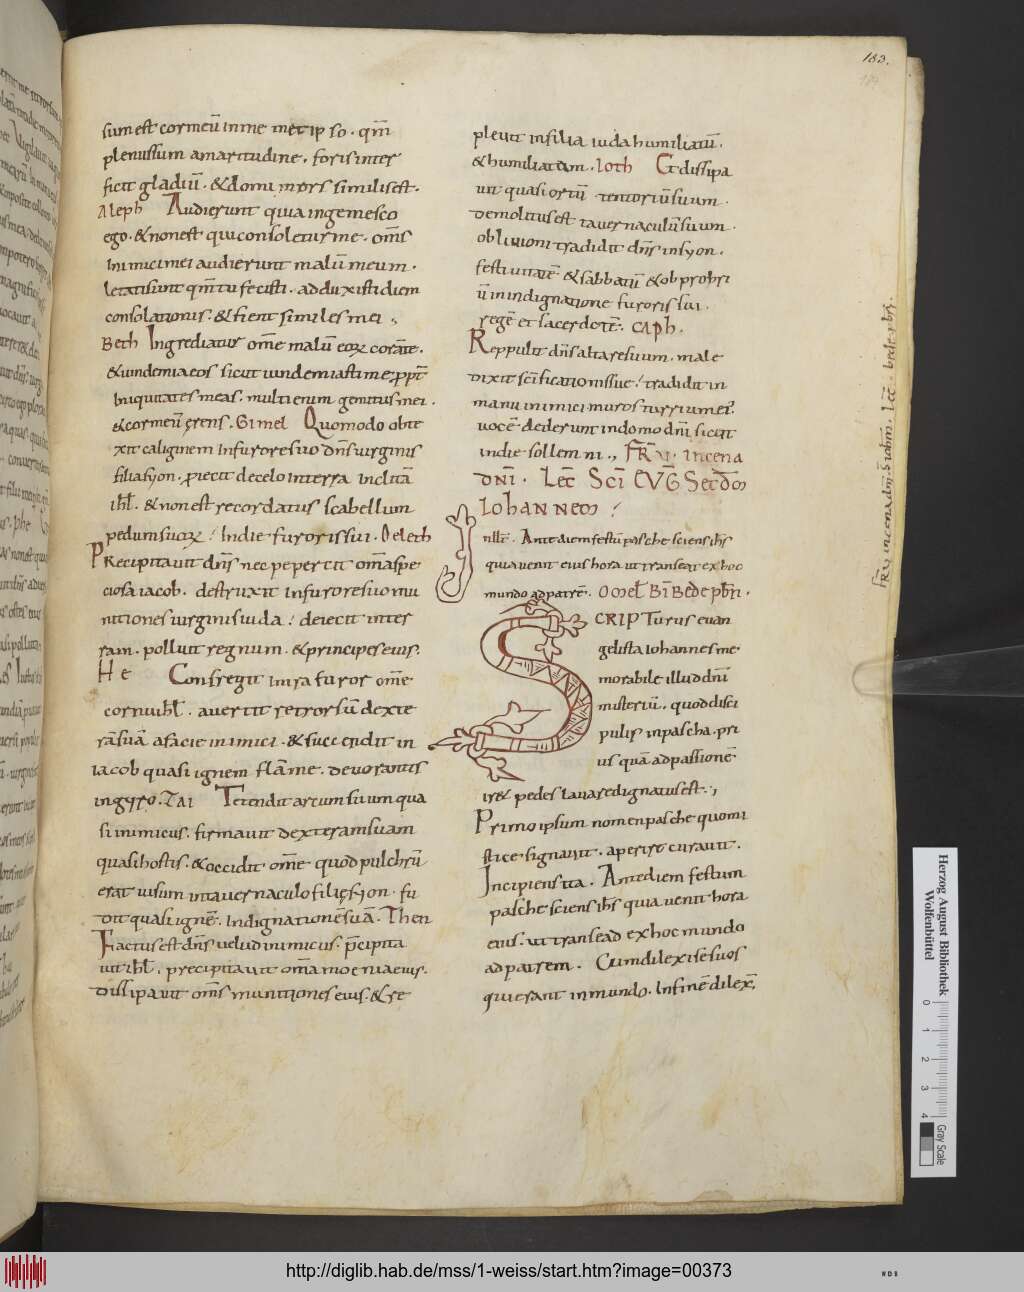 183.
sum est cor meū in me met ip so . qm̄
plenus sum amaritudine . foris inter
ficit gladiū . & domi mors similis est .
Aleph Audierunt quia ingemesco
ego . & non est qui consoletur me . om̄s
Inimici mei audierunt malū meum .
letati sunt qm̄ tu fecisti . adduxisti diem
consolationis . & fient similes mei ;
Beth Ingrediatur om̄e malū eoꝝ corā te .
& uindemia eos sicut uindemiasti me ꝓpt̄
Iniquitates meas . multi enim gemitus mei .
& cor meū ęrens . Gimel Quomodo obte
xit caliginem In furore suo dn̄s uirginis
filia syon . ꝓiecit de celo In terra inclitā
ihl̄ . & non est recordatus scabellum
pedum suoꝝ / In die furoris sui . Deleth
PRecipitauit dn̄s nec pepercit om̄a spe
ciosa iacob . destruxit In furore suo mu
nitiones uirginis iuda / deiecit inter
ram . polluit regnum . & principes eius .
He Confregit In ira furor om̄e
cornu ihl̄ . auertit retrorsū dexte
rā suā a facie inimici . & succendit in
iacob quasi ignem flāme . deuorantis
in gyro . Zai Tetendit arcum suum qua
si inimicus . firmauit dexteram suam
quasi hostis . & occidit om̄e quod pulchrū
erat uisum in tauernaculo filię syon . fu
dit quasi ignē . Indignationē suā . Then
Factus est dn̄s uelud inimicus . p̄cipita
uit ihl̄ . precipitauit om̄a moenia eius .
dissipauit om̄s munitiones eius . & re
pleuit in filia iuda humiliatū .
& humiliatam . Ioth Et dissipa
uit quasi ortū tentoriū suum .
demolitus est tauernaculū suum .
obliuioni tradidit dn̄s in syon .
festiuitatē & sabbatū & obprobri
ū in indignatione furoris sui .
regē et sacerdotē . CAPh .
Reppulit dn̄s altare suum . male
dixit sc̄ificationi suae / tradidit in
manu inimici muros turrium ei' .
uocē dederunt in domo dn̄i sicut
in die sollemni . , FR̄ V . IN cena
DN̄I . Lec̄ Scī EVḠ Secdō
IohANNeM /
In ill̄ . Ante diem festū pasche sciens ih̄s
quia uenit eius hora ut transeat ex hoc
mundo ad patrē . Omel̄ BĪ Bede pb̄ri .
SCRIPTurus euan
gelista Iohannes me
morabile illud dn̄i
misteriū . quod disci
pulis in pascha . pri
us quā ad passionē
ir& pedes lauare dignatus est . ,
Primo ipsum nomen pasche quo mi
stice signauit . aperire curauit .
Incipiens ita . Ante diem festum
pasche sciens ih̄s quia uenit hora
eius . ut transead ex hoc mundo
ad patrem . Cum dilexisset suos
qui erant in mundo . In finē dilex̄ ,
Herzog August Bibliothek
Wolfenbüttel
0 1 2 3 4
Gray Scale
http://diglib.hab.de/mss/1-weiss/start.htm?image=00373